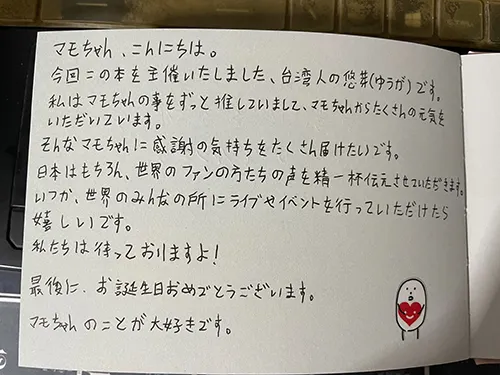 マモちゃん、こんにちは。
今回この本を主催いたしました、台湾人の悠芽(ゆうが)です。
私はマモちゃんの事をずっと推していまして、マモちゃんからたくさんの元気を
いただいています。
そんなマモちゃんに感謝の気持ちをたくさん届けたいです。
日本はもちろん、世界のファンの方たちの声を精一杯伝えさせていただきます。
いつか、世界のみんなの所にライブやイベントを行っていただけたら
嬉しいです。
私たちは待っておりますよ!
最後に、お誕生日おめでとうございます。
マモちゃんのことが大好きです。